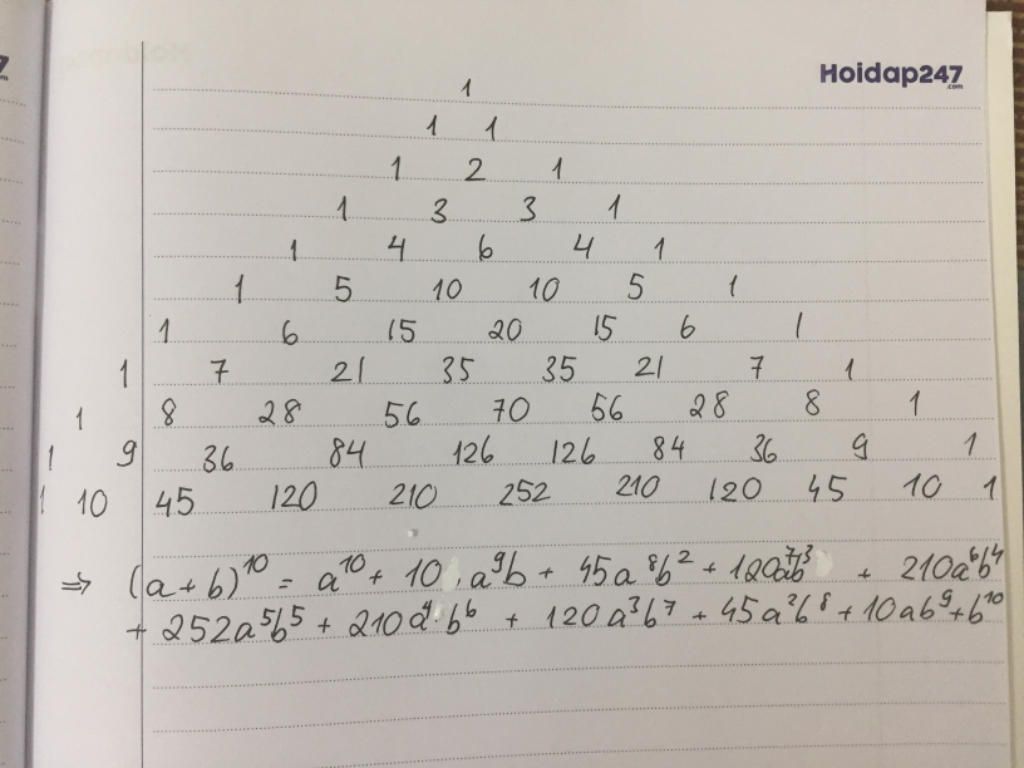 Hoidap247
.com
1
1 1
1 2 1
1 3 3 1
1 4 6 4 1
1 5 10 10 5 1
1 6 15 20 15 6 1
1 7 21 35 35 21 7 1
1 8 28 56 70 56 28 8 1
1 9 36 84 126 126 84 36 9 1
1 10 45 120 210 252 210 120 45 10 1
⇒ (a+b)¹⁰ = a¹⁰ + 10 . a⁹b + 45a⁸b² + 120a⁷b³ + 210a⁶b⁴
+ 252a⁵b⁵ + 210a⁴.b⁶ + 120a³b⁷ + 45a²b⁸ + 10ab⁹ + b¹⁰